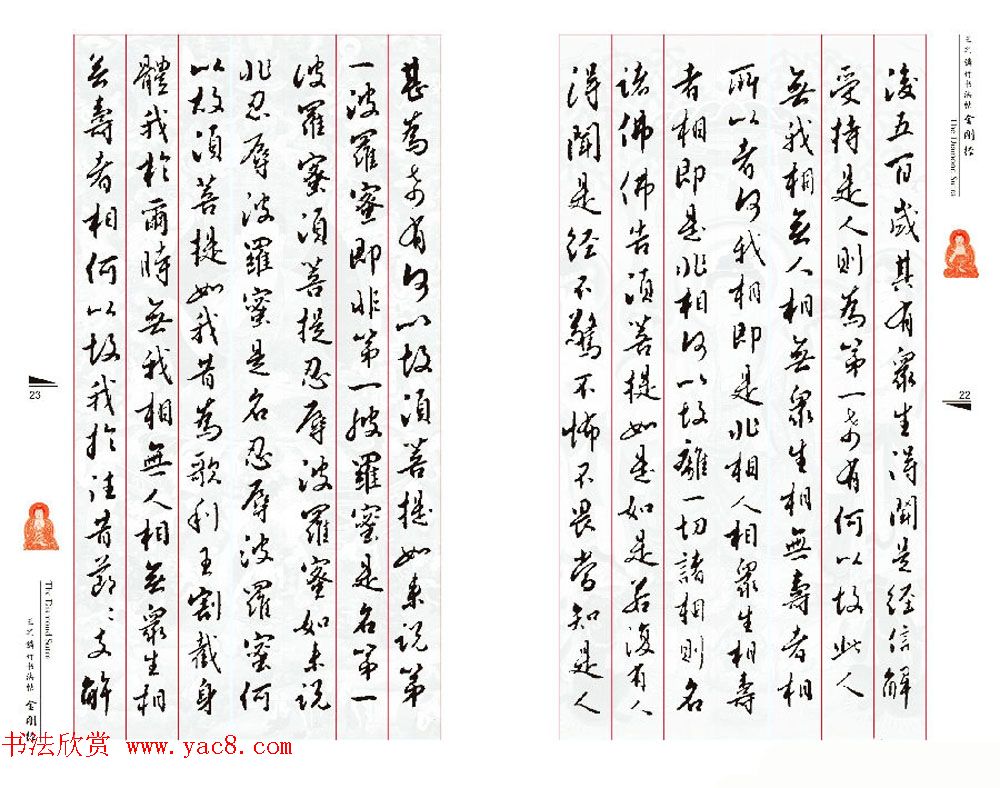 行书法帖 金刚经
The Diamond Sutra
22
後五百歲其有眾生得聞是經信解
受持是人則為第一希有何以故此人
無我相無人相無眾生相無壽者相
所以者何我相即是非相人相眾生相壽
者相即是非相何以故離一切諸相則名
諸佛佛告須菩提如是如是若復有人
得聞是經不驚不怖不畏當知是人
甚為希有何以故須菩提如來說第
一波羅蜜即非第一波羅蜜是名第一
波羅蜜須菩提忍辱波羅蜜如來說
非忍辱波羅蜜是名忍辱波羅蜜何
以故須菩提如我昔為歌利王割截身
體我於爾時無我相無人相無眾生相
無壽者相何以故我於往昔節々支解
23
The Diamond Sutra
行书法帖 金刚经
书法欣赏 www.yac8.com